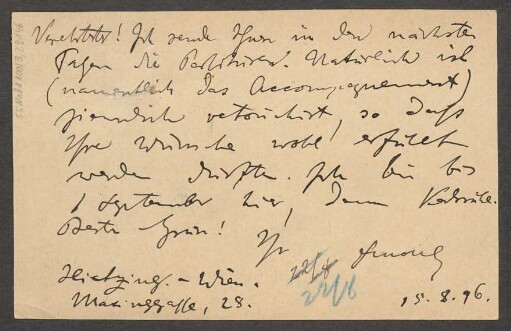 Verehrtester! Ich sende Ihnen in den nächsten
Tagen die Partituren. Natürlich ist
(namentlich das Accompagnement)
ziemlich retouchirt, so dass
Ihre Wünsche wohl erfüllt
werden dürften. Ich bin bis
1 September hier, dann Karlsruhe.
Beste Grüsse! Ihr
Hietzing. - Wien.
Maxinggasse, 28.
22/8
15.8.96.